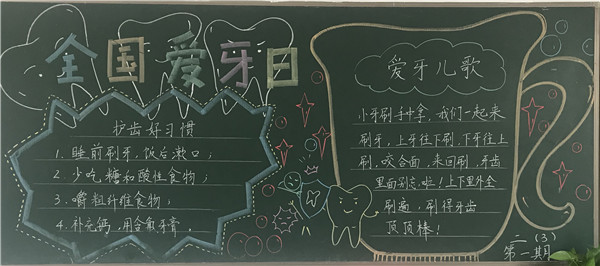 全国爱牙日
护齿好习惯
1、睡前刷牙，饭后漱口；
2、少吃糖和酸性食物；
3、嚼粗纤维食物；
4、补充钙，用含氟牙膏。
爱牙儿歌
小牙刷手中拿，我们一起来
刷牙，上牙往下刷，下牙往上
刷，咬合面，来回刷，牙齿
里面别忘啦！上下里外全
刷遍，刷得牙齿
顶顶棒！
二（3）
第一期